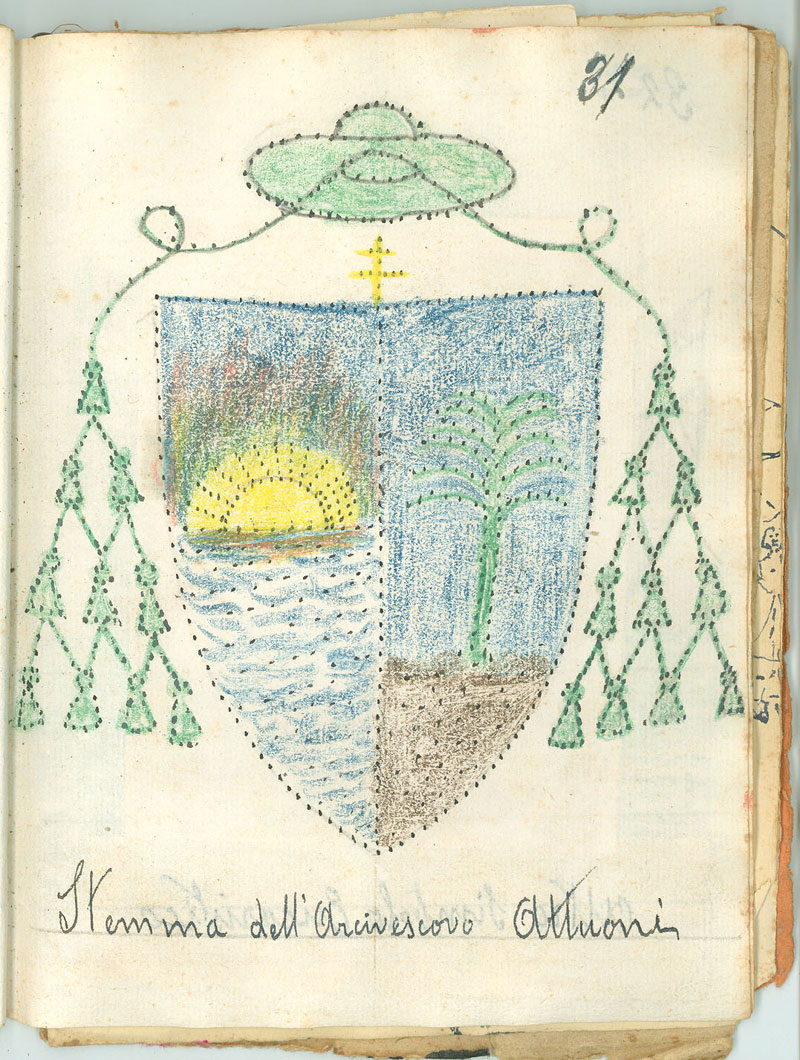 31
Stemma dell'Arcivescovo Attuoni